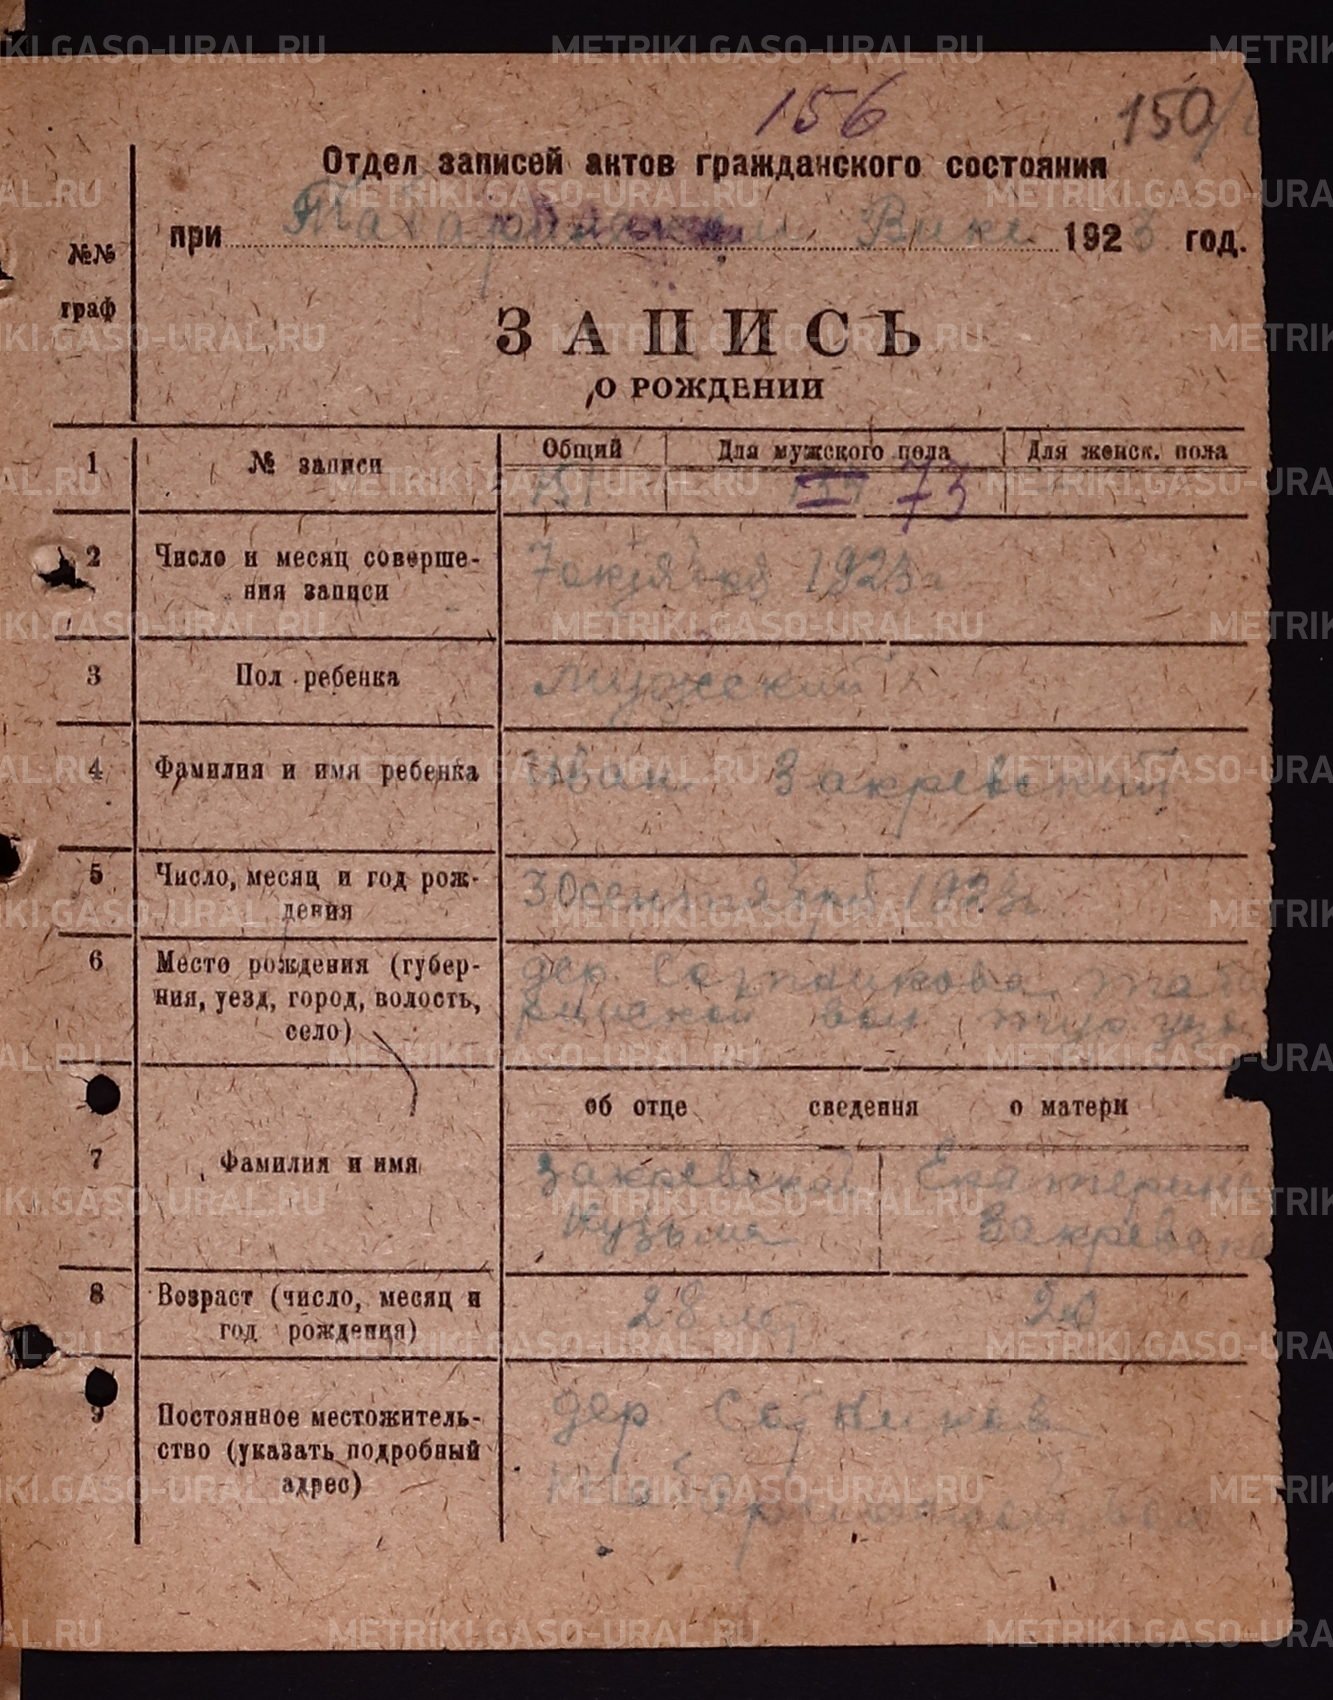 156
150/
Отдел записей актов гражданского состояния
при Табаринском Вике 1923 год.
№№
граф
ЗАПИСЬ
О РОЖДЕНИИ
Общий Для мужского пола Для женск. пола
1 № записи 151 73
2 Число и месяц соверше-
ния записи
7 октября 1923 г
3 Пол ребенка мужской
4 Фамилия и имя ребенка Иван Закревский
5 Число, месяц и год рож-
дения
30 сентября 1923 г
6 Место рождения (губер-
ния, уезд, город, волость,
село)
дер. Таба
ринской вол
об отце сведения о матери
7 Фамилия и имя
Закревской Екатерина
Кузьма Закревска
8 Возраст (число, месяц и
год рождения)
28 лет 20
9 Постоянное местожитель-
ство (указать подробный
адрес)
дер
Табаринской вол
METRIKI.GASO-URAL.RU